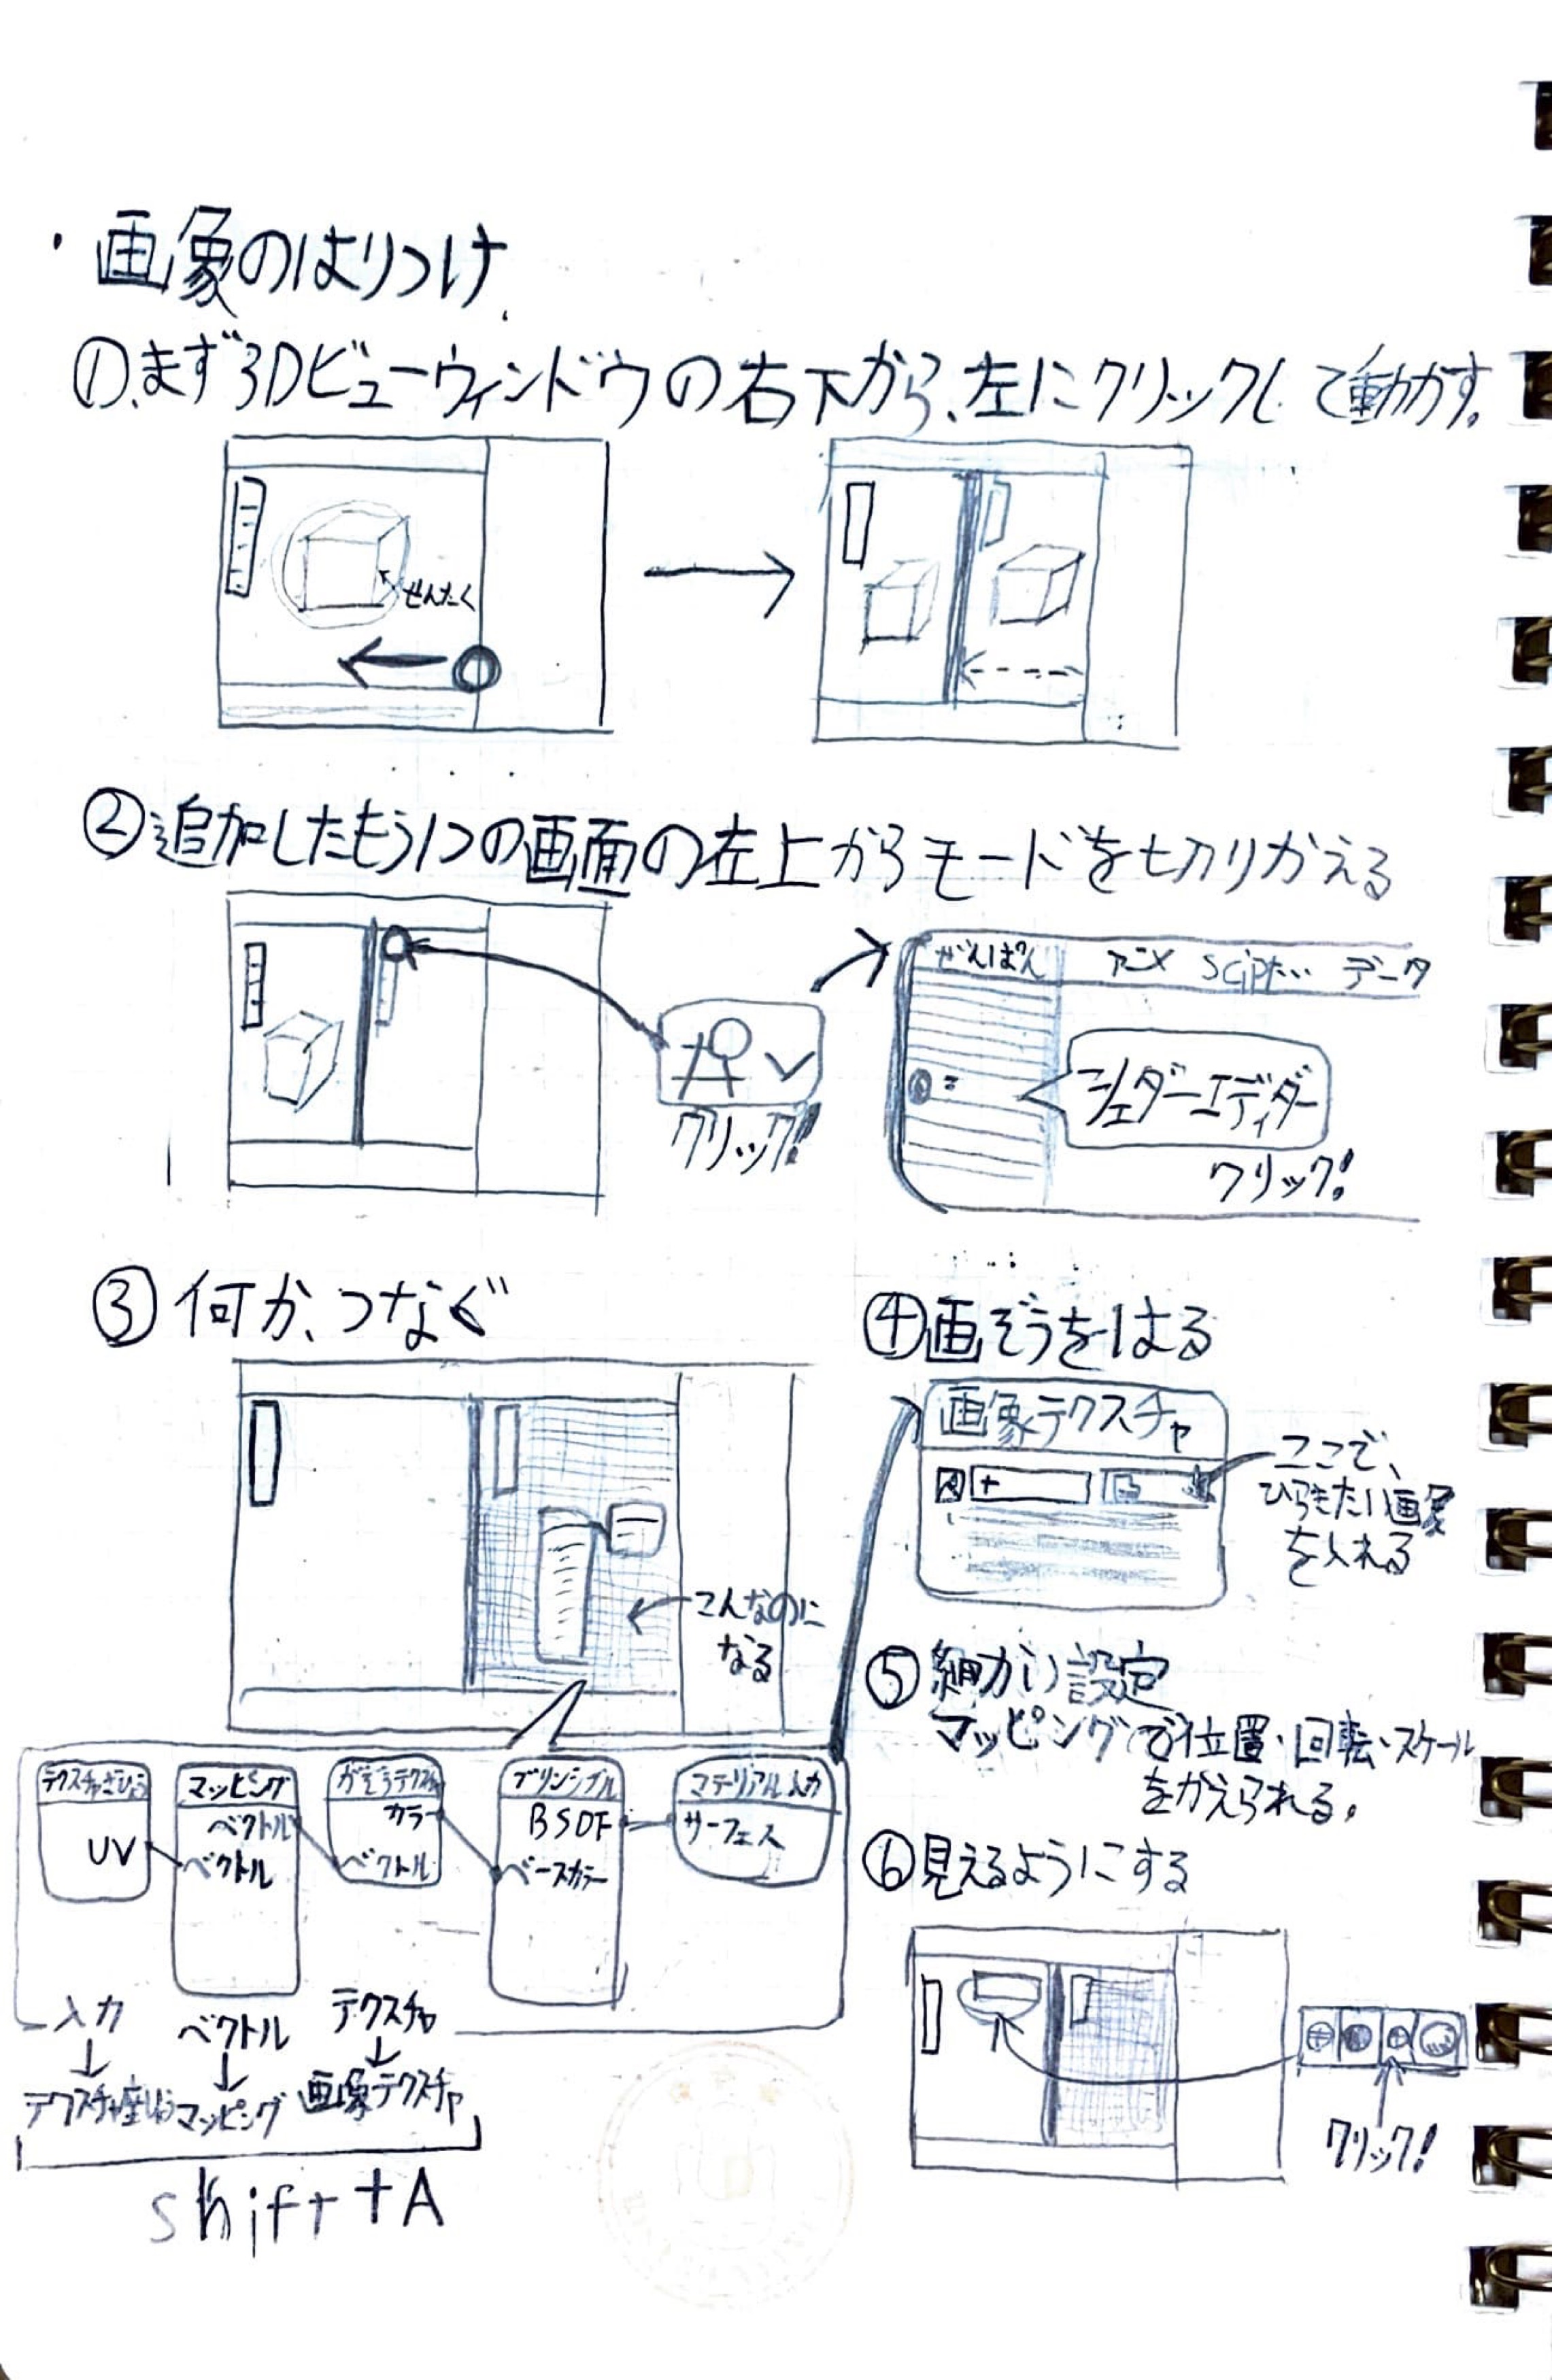 ・画像のはりつけ
①まず3Dビューウィンドウの右下から、左にクリックして動かす。
せんたく
②追加したもう1つの画面の左上からモードを切りかえる
クリック!
ぜんぱん アニメ データ
シェダーエディター
クリック!
③何か、つなぐ
こんなのに
なる
テクスチャざひょう
UV
マッピング
ベクトル
ベクトル
がぞうテクスチャ
カラー
ベクトル
プリンシプル
BSDF
ベースカラー
マテリアル入力
サーフェス
入力
↓
テクスチャ座ひょう
ベクトル
↓
マッピング
テクスチャ
↓
画像テクスチャ
shift+A
④画ぞうをはる
画像テクスチャ
+
ここで、
ひらきたい画像
を入れる
⑤細かい設定
マッピングで位置・回転・スケール
をかえられる。
⑥見えるようにする
クリック!